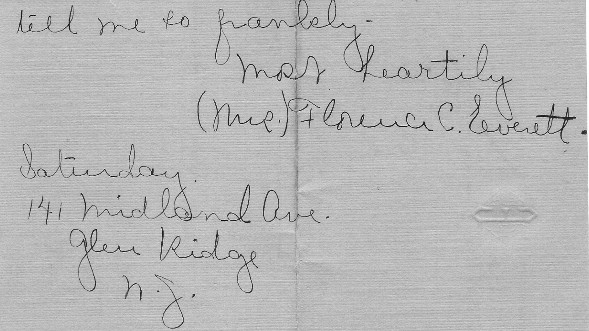 tell me so frankly-
Most heartily
(Mrs.) Florence C. Everett.
Saturday.
141 Midland Ave.
Glen Ridge
N.J.